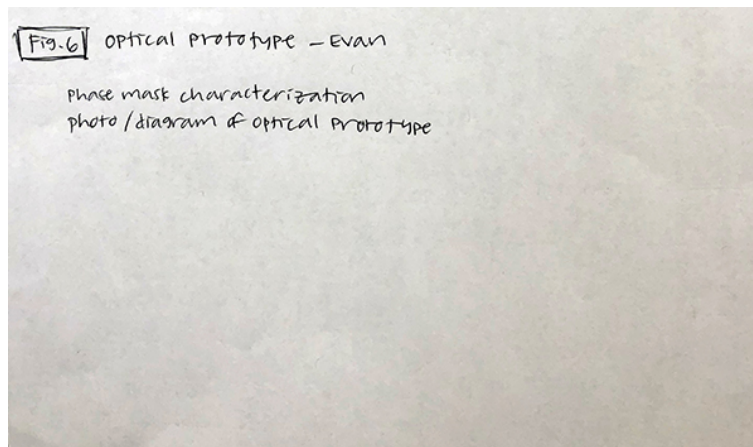 Fig.6 Optical Prototype - Evan
phase mask characterization
photo/diagram of optical Prototype